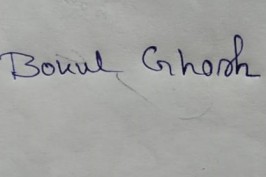 Bokul Ghosh